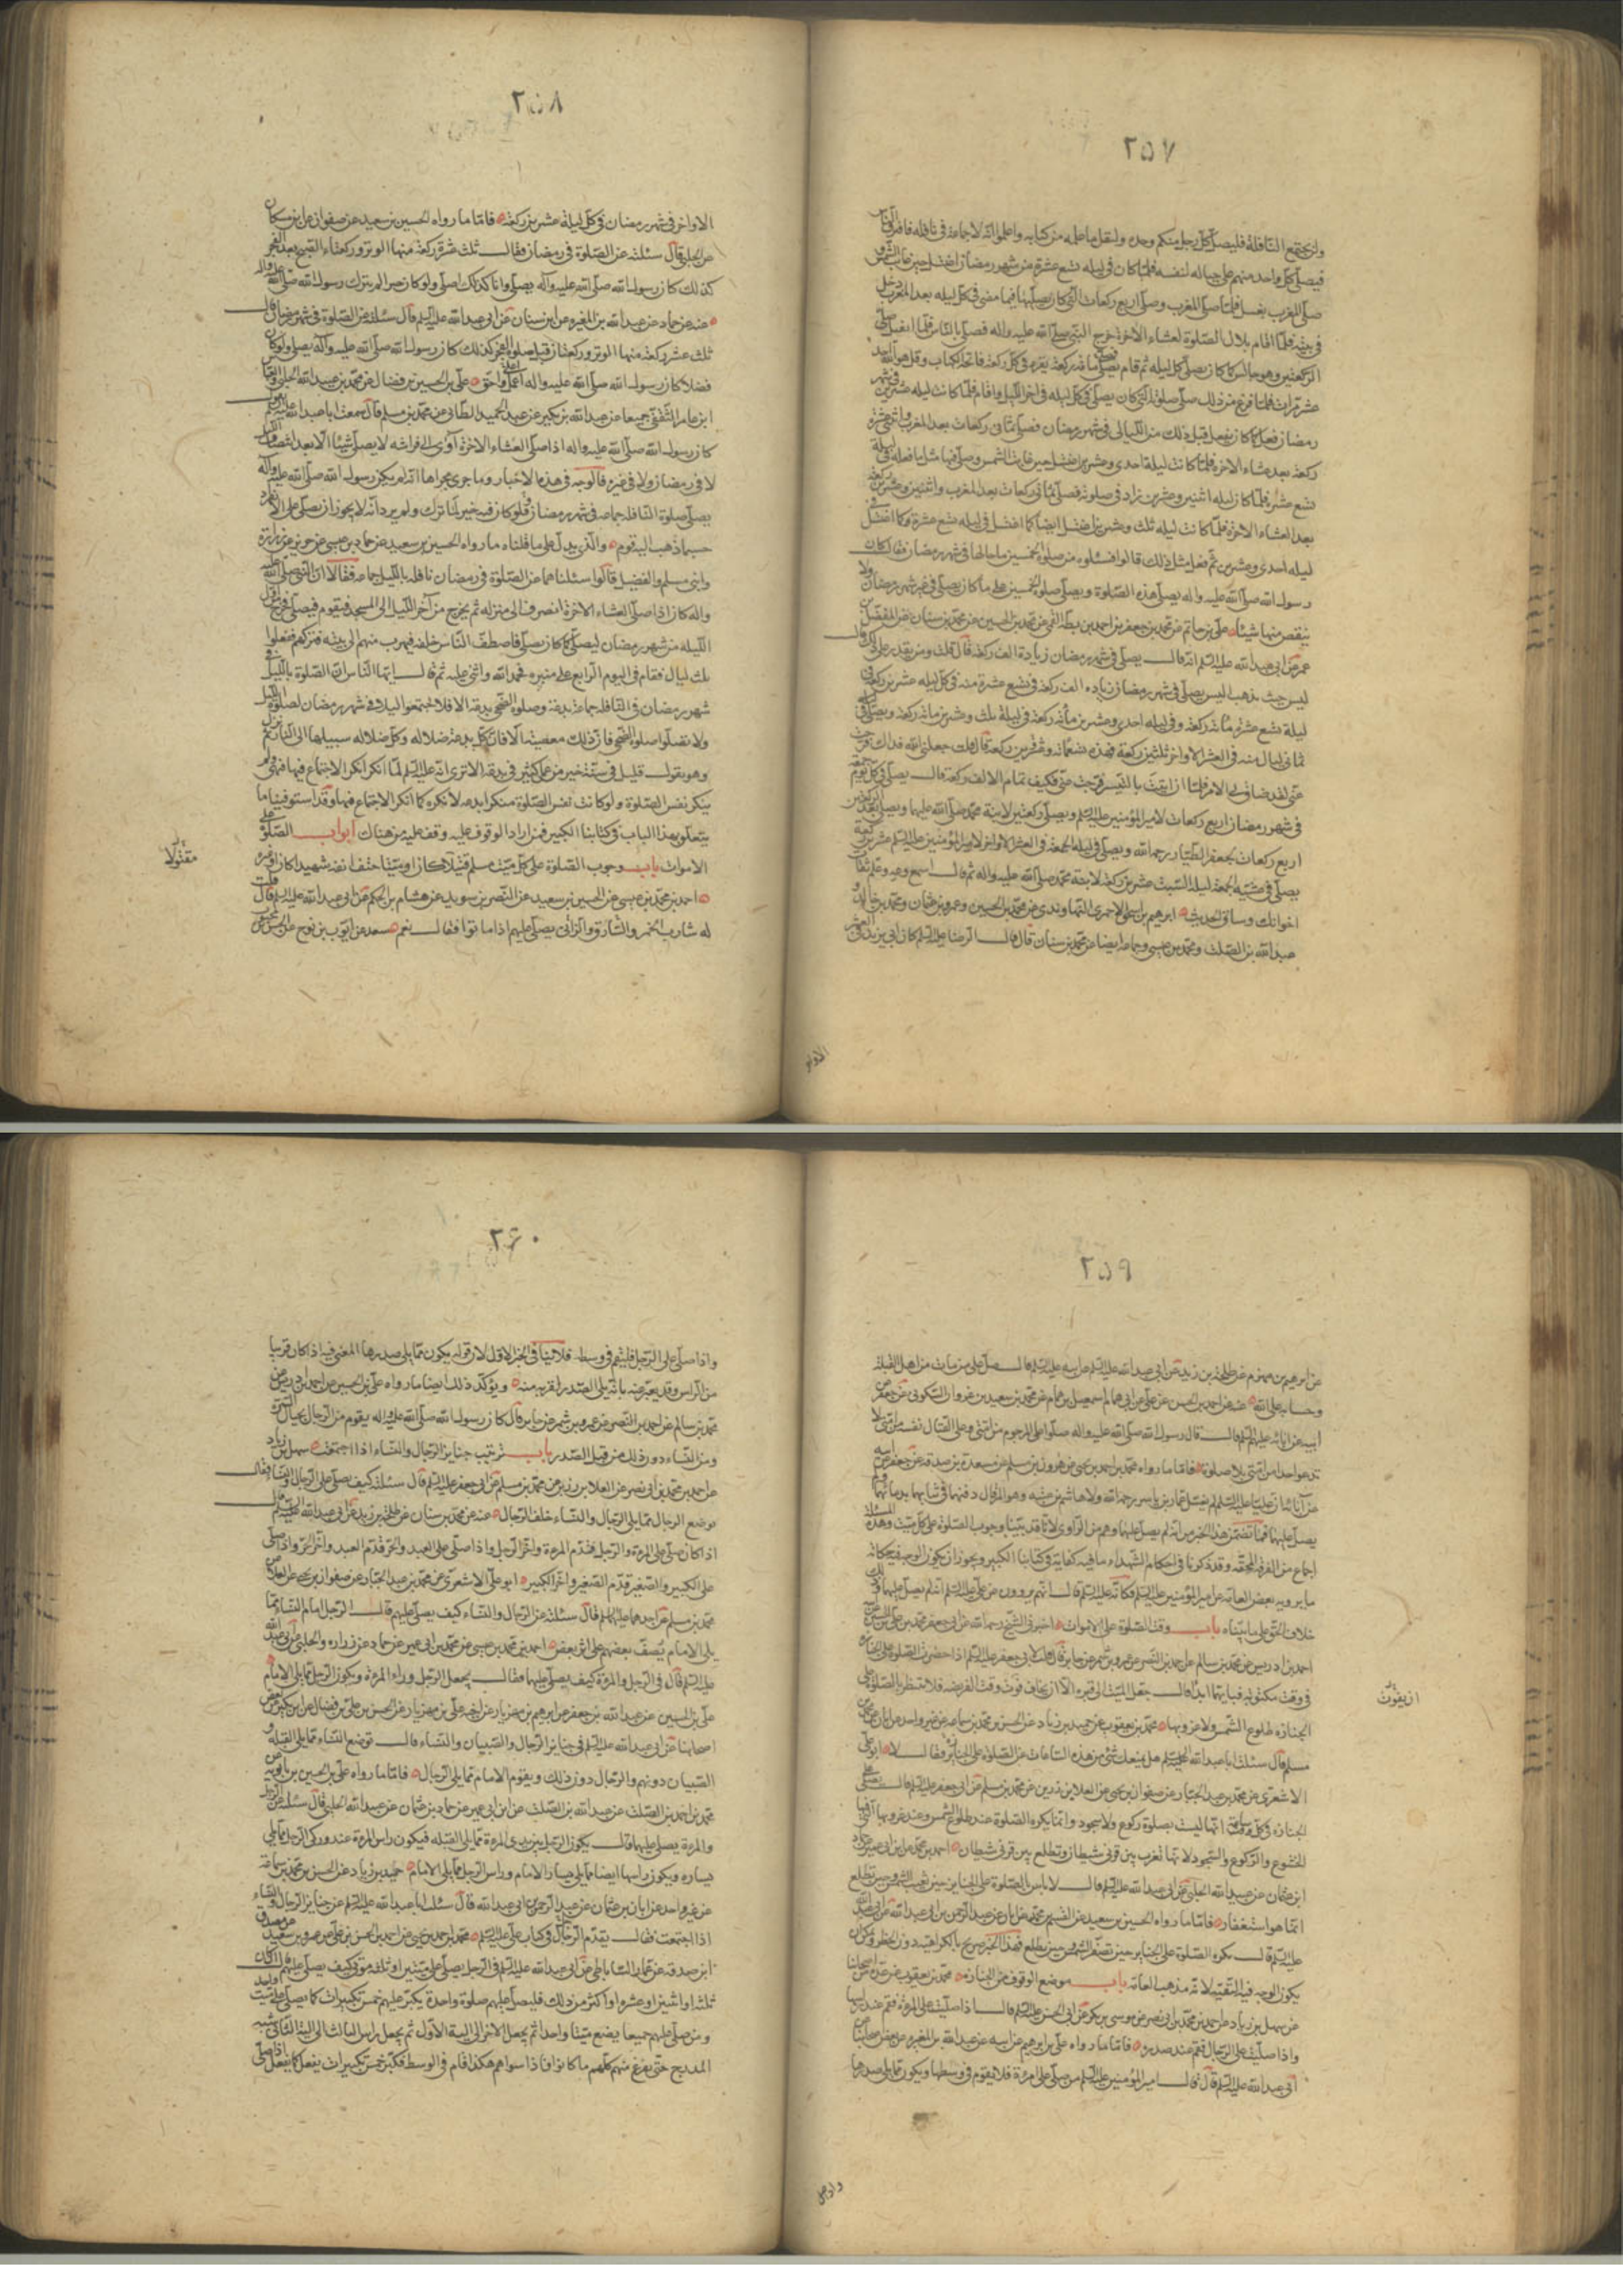 ٢٥٧
ولن يجتمع النافلة فليصل كل رجل منكم وحده وليقل ما علمه من كتابه واعلموا انه لا جماعة في نافلة فافترق الناس
فيصلى كل واحد منهم على حياله لنفسه فلما كان في ليلة تسع عشرة من شهر رمضان اغتسل حين غابت الشمس و
صلى المغرب بغسل فلما صلى المغرب وصلى اربع ركعات التى كان يصليها فيما مضى في كل ليلة بعد المغرب دخل
في بيته فلما اقام بلال الصلوة لعشاء الاخرة خرج النبي صلى الله عليه واله فصلى بالناس فلما انفتل صلى
الركعتين وهو جالس كما كان يصلى كل ليلة ثم قام يصلى مائة ركعة يقرء في كل ركعة فاتحة الكتاب وقل هو الله احد
عشر مرات فلما فرغ من ذلك صلى صلوته التى كان يصلى في كل ليلة في اخر الليل واقام فلما كانت ليلة عشرين من شهر
رمضان فعل كما كان يفعل قبل ذلك من الليالى في شهر رمضان فصلى ثمانى ركعات بعد المغرب واثنتى عشرة
ركعة بعد عشاء الاخرة فلما كانت ليلة احدى وعشرين اغتسل حين غابت الشمس وصلى فيها مثل ما فعل في ليلة
تسع عشرة فلما كان ليلة اثنين وعشرين زاد في صلوته فصلى ثمانى ركعات بعد المغرب واثنتين وعشرين ركعة
بعد العشاء الاخرة فلما كانت ليلة ثلث وعشرين اغتسل ايضا كما اغتسل في ليلة تسع عشرة وكما اغتسل في
ليلة احدى وعشرين ثم فعل مثل ذلك قالوا فسئلوه عن صلوة الخمسين ما حالها في شهر رمضان فقال كان
رسول الله صلى الله عليه واله يصلى هذه الصلوة ويصلى صلوة الخمسين على ما كان يصلى في غير شهر رمضان ولا
ينقص منها شيئا علي بن حاتم عن محمد بن جعفر بن احمد بن بطة القمي عن محمد بن الحسين عن محمد بن سنان عن المفضل بن
عمر عن ابى عبد الله عليه السلم انه قال يصلى في شهر رمضان زيادة الف ركعة قال قلت ومن يقدر على ذلك قال
ليس حيث يذهب اليس يصلى في شهر رمضان زيادة الف ركعة في تسع عشرة منه في كل ليلة عشرين ركعة وفى
ليلة تسع عشرة مائة ركعة وفي ليلة احدى وعشرين مائة ركعة وفي ليلة ثلث وعشرين مائة ركعة ويصلى في
ثمانى ليال منه في العشر الاواخر ثلثين ركعة فهذه تسعمائة وعشرين ركعة قال قلت جعلنى الله فداك فرجت
عنى لقد ضاق بى الامر فلما ان اتيت بالتفسير فرجت عنى فكيف تمام الالف ركعة قال يصلى في كل يوم جمعة
في شهر رمضان اربع ركعات لامير المؤمنين عليه السلم ويصلى ركعتين لابنة محمد صلى الله عليهما ويصلى بعد الركعتين
اربع ركعات لجعفر الطيار رحمه الله ويصلى في ليلة الجمعة في العشر الاواخر لامير المؤمنين عليه السلم عشرين ركعة
يصلى في عشية الجمعة ليلة السبت عشرين ركعة لابنة محمد صلى الله عليه واله ثم قال اسمع وعه وعلم ثقات
اخوانك وساق الحديث ابرهيم بن اسحق الاحمرى النهاوندى عن محمد بن الحسين وعمرو بن عثمان ومحمد بن خالد و
عبد الله بن الصلت ومحمد بن عيسى وجماعة ايضا عن محمد بن سنان قال قال الرضا عليه السلم كان ابى يزيد في العشر
٢٥٨
الاواخر في شهر رمضان في كل ليلة عشرين ركعة فاما ما رواه الحسين بن سعيد عن صفوان عن ابن مسكان
عن الحلبى قال سئلته عن الصلوة في رمضان فقال ثلث عشرة ركعة منها الوتر وركعتا الصبح بعد الفجر
كذلك كان رسول الله صلى الله عليه وآله يصلى وانا كذلك اصلى ولو كان خيرا لم يترك رسول الله صلى الله عليه واله
عنه عن حماد عن عبد الله بن المغيرة عن ابن سنان عن ابى عبد الله عليه السلم قال سئلته عن الصلوة في شهر رمضان فقال
ثلث عشر ركعة منها الوتر وركعتان قبل صلوة الفجر كذلك كان رسول الله صلى الله عليه وآله يصلى ولو كان
فضلا كان رسول الله صلى الله عليه واله اعمل به واحق علي بن الحسين بن فضال عن محمد بن عبيد الله الحلبى والعباس
ابن عامر الثقفى جميعا عن عبد الله بن بكير عن عبد الحميد الطائى عن محمد بن مسلم قال سمعت ابا عبد الله عليه السلم يقول
كان رسول الله صلى الله عليه واله اذا صلى العشاء الاخرة آوى الى فراشه لا يصلى شيئا الا بعد انتصاف الليل
لا في رمضان ولا في غيره فالوجه في هذه الاخبار وما جرى مجراها انه لم يكن رسول الله صلى الله عليه وآله
يصلى صلوة النافلة جماعة في شهر رمضان ولو كان فيه خير لما ترك ولم يرد انه لا يجوز ان يصلى على الانفراد
حسبما ذهب اليه قوم والذى يدل على ما قلناه ما رواه الحسين بن سعيد عن حماد بن عيسى عن حريز عن زرارة
وابنى مسلم والفضيل قالوا سئلناهما عن الصلوة في رمضان نافلة بالليل جماعة فقالا ان النبى صلى الله عليه
واله كان اذا صلى العشاء الاخرة انصرف الى منزله ثم يخرج من آخر الليل الى المسجد فيقوم فيصلى فخرج في اول
الليلة من شهر رمضان ليصلى كما كان يصلى فاصطف الناس خلفه فهرب منهم الى بيته وتركهم ففعلوا
ثلث ليال فقام في اليوم الرابع على منبره فحمد الله واثنى عليه ثم قال ايها الناس ان الصلوة بالليل في
شهر رمضان في النافلة جماعة بدعة وصلوة الضحى بدعة الا فلا تجتمعوا ليلا في شهر رمضان لصلوة الليل
ولا تصلوا صلوة الضحى فان ذلك معصية الا فان كل بدعة ضلالة وكل ضلالة سبيلها الى النار ثم نزل
وهو يقول قليل في سنة خير من عمل كثير في بدعة الا ترى انه عليه السلم لما انكر انكر الاجتماع فيها فهى ولو
ينكر نفس الصلوة ولو كانت نفس الصلوة منكرا بدعة لانكره كما انكر الاجتماع فيها وقد استوفينا ما
يتعلق بهذا الباب في كتابنا الكبير فمن اراد الوقوف عليه وقف عليه من هناك ابواب الصلوة على
الاموات باب وجوب الصلوة على كل ميت مسلم قتيلا كان او ميتا حتف انفه شهيدا كان او غيره
مقتولا
احمد بن محمد بن عيسى عن الحسين بن سعيد عن النضر بن سويد عن هشام بن الحكم عن ابى عبد الله عليه السلم قال قلت
له شارب الخمر والسارق والزانى يصلى عليهم اذا ماتوا فقال نعم سعد عن ايوب بن نوح عن الحسن بن محبوب
الاواخر
٢٥٩
عن ابرهيم بن مهزم عن طلحة بن زيد عن ابى عبد الله عليه السلم عن ابيه عليه السلم قال صل على من مات من اهل القبلة
وحسابه على الله عنه عن احمد بن الحسن عن علي عن ابى همام اسمعيل بن همام عن محمد بن سعيد بن غزوان السكونى عن جعفر عن
ابيه عن ابائه عليهم السلم قال قال رسول الله صلى الله عليه واله صلوا على المرجوم من امتى وعلى القتال نفسه من امتى لا
تدعوا احدا من امتى بلا صلوة فاما ما رواه محمد بن احمد بن يحيى عن هرون بن مسلم عن مسعدة بن صدقة عن جعفر عن ابيه
عن آبائه ان عليا عليه السلم لم يغسل عمار بن ياسر رحمه الله ولا هاشم بن عتبة وهو المرقال دفنهما في ثيابهما بدمائهما ولم
يصل عليهما فما تضمن هذا الخبر من انه لم يصل عليهما وهم من الراوى لانا قد بينا وجوب الصلوة على كل ميت وهذه المسئلة
اجماع من الفرقة المحقة وقد ذكرنا في احكام الشهداء ما فيه كفاية في كتابنا الكبير ويجوز ان يكون الوجه فيه حكاية
ما يرويه بعض العامة عن امير المؤمنين عليه السلم فكانه عليه السلم قال انهم يروون عن علي عليه السلم انه لم يصل عليهما وذلك
خلاف الحق على ما بيناه باب وقت الصلوة على الاموات اخبرنى الشيخ رحمه الله عن ابى جعفر محمد بن علي بن الحسين عن
احمد بن ادريس عن محمد بن سالم عن احمد بن النضر عن عمرو بن شمر عن جابر قال قلت لابى جعفر عليه السلم اذا حضرت الصلوة على الجنازة
في وقت مكتوبة فبايتهما ابدأ قال عجل الميت الى قبره الا ان يخاف فوت وقت الفريضة فلا تنتظر بالصلوة على
ان يفوت
الجنازة طلوع الشمس ولا غروبها محمد بن يعقوب عن حميد بن زياد عن الحسن بن محمد بن سماعة عن غير واحد عن ابان عن محمد بن
مسلم قال سئلت ابا عبد الله عليه السلم هل يمنعك شئ من هذه الساعات عن الصلوة على الجنائز فقال لا ابو علي
الاشعرى عن محمد بن عبد الجبار عن صفوان بن يحيى عن العلا بن رزين عن محمد بن مسلم عن ابى جعفر عليه السلم قال يصلى على
الجنازة في كل وقت ساعة انها ليست بصلوة ركوع ولا سجود وانما يكره الصلوة عند طلوع الشمس وعند غروبها التى فيها
الخشوع والركوع والسجود لانها تغرب بين قرنى شيطان وتطلع بين قرنى شيطان احمد بن محمد عن ابن ابى عمير عن حماد
ابن عثمان عن عبيد الله الحلبى عن ابى عبد الله عليه السلم قال لا باس بالصلوة على الجنايز حين تغيب الشمس وحين تطلع
انما هو استغفار فاما ما رواه الحسين بن سعيد عن القسم بن محمد عن ابان عن عبد الرحمن بن ابى عبد الله عن ابى عبد الله
عليه السلم قال يكره الصلوة على الجنايز حين تصفر الشمس وحين تطلع فهذا الخبر صريح بالكراهية دون الحظر ويمكن ان
يكون الوجه فيه التقية لانه مذهب العامة باب موضع الوقوف من الجنازة محمد بن يعقوب عن عدة من اصحابنا
عن سهل بن زياد عن احمد بن محمد بن ابى نصر عن موسى بن بكر عن ابى الحسن عليه السلم قال اذا صليت على المرءة فقم عند راسها
واذا صليت على الرجال فقم عند صدره فاما ما رواه علي بن ابرهيم عن ابيه عن عبد الله بن المغيرة عن بعض اصحابنا عن
ابى عبد الله عليه السلم قال قال امير المؤمنين عليه السلم من صلى على امرءة فلا يقوم في وسطها ويكون مما يلى صدرها
واذا صلى
٢٦٠
واذا صلى على الرجل فليقم في وسطه فلا ينافى الخبر الاول لان قوله يكون مما يلى صدرها المعنى فيه اذا كان قريبا
من الراس وقد يعبر عنه بانه يلى الصدر لقربه منه ويؤكد ذلك ايضا ما رواه علي بن الحسين عن احمد بن ادريس عن
محمد بن سالم عن احمد بن النضر عن عمرو بن شمر عن جابر قال كان رسول الله صلى الله عليه واله يقوم من الرجال بحيال السرة
ومن النساء دون ذلك من قبل الصدر باب ترتيب جنايز الرجال والنساء اذا اجتمعت سهل بن زياد
عن احمد بن محمد بن ابى نصر عن العلا بن رزين عن محمد بن مسلم عن ابى جعفر عليه السلم قال سئلته كيف يصلى على الرجال والنساء فقال
توضع الرجال مما يلى الرجال والنساء خلف الرجال عنه عن محمد بن سنان عن طلحة بن زيد عن ابى عبد الله عليه السلم قال
اذا كان صلى على المرءة والرجل قدم المرءة واخر الرجل واذا صلى على العبد والحر قدم العبد واخر الحر واذا صلى
على الكبير والصغير قدم الصغير واخر الكبير ابو علي الاشعرى عن محمد بن عبد الجبار عن صفوان بن يحيى عن العلا عن
محمد بن مسلم عن احدهما عليهما السلم قال سئلته عن الرجال والنساء كيف يصلى عليهم قال الرجل امام النساء مما
يلى الامام يصف بعضهم على اثر بعض احمد بن محمد بن عيسى عن محمد بن ابى عمير عن حماد عن زرارة والحلبى عن ابى عبد الله
عليه السلم قال في الرجل والمرءة كيف يصلى عليهما فقال يجعل الرجل وراء المرءة ويكون الرجل مما يلى الامام
علي بن الحسين عن عبد الله بن جعفر عن ابرهيم بن مهزيار عن اخيه علي بن مهزيار عن الحسن بن علي بن فضال عن ابن بكير عن بعض
اصحابنا عن ابى عبد الله عليه السلم في جنايز الرجال والصبيان والنساء قال توضع النساء مما يلى القبلة و
الصبيان دونهم والرجال دون ذلك ويقوم الامام مما يلى الرجال فاما ما رواه علي بن الحسين بن بابويه عن
محمد بن احمد بن الصلت عن عبد الله بن الصلت عن ابن ابى عمير عن حماد بن عثمان عن عبيد الله الحلبى قال سئلته عن الرجل
والمرءة يصلى عليهما قال يكون الرجل بين يدى المرءة مما يلى القبلة فيكون راس المرءة عند وركى الرجل مما يلى
يساره ويكون راسها ايضا مما يلى يسار الامام وراس الرجل مما يلى الامام حميد بن زياد عن الحسن بن محمد بن سماعة
عن غير واحد عن ابان بن عثمان عن عبد الرحمن بن ابى عبد الله قال سئلت ابا عبد الله عليه السلم عن جنايز الرجال والنساء
اذا اجتمعت فقال يقدم الرجال في كتاب علي عليه السلم محمد بن احمد بن يحيى عن احمد بن الحسن بن علي عن عمرو بن سعيد عن مصدق
ابن صدقة عن عمار الساباطى عن ابى عبد الله عليه السلم في الرجل يصلى على ميتين او ثلثة موتى كيف يصلى عليهم قال ان كان
ثلثة او اثنين او عشرة او اكثر من ذلك فليصل عليهم صلوة واحدة يكبر عليهم خمس تكبيرات كما يصلى على ميت واحد
ومن صلى عليهم جميعا يضع ميتا واحدا ثم يجعل الاخر الى الية الاول ثم يجعل راس الثالث الى الية الثانى شبه
المدرج حتى يفرغ منهم كلهم ما كانوا فاذا سواهم هكذا قام في الوسط فكبر خمس تكبيرات يفعل كما يفعل اذا صلى